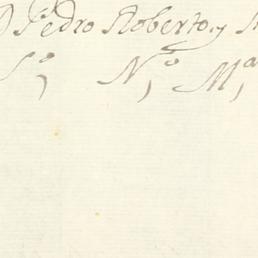 D Pedro Roberto, y
S,º N,º M,ª